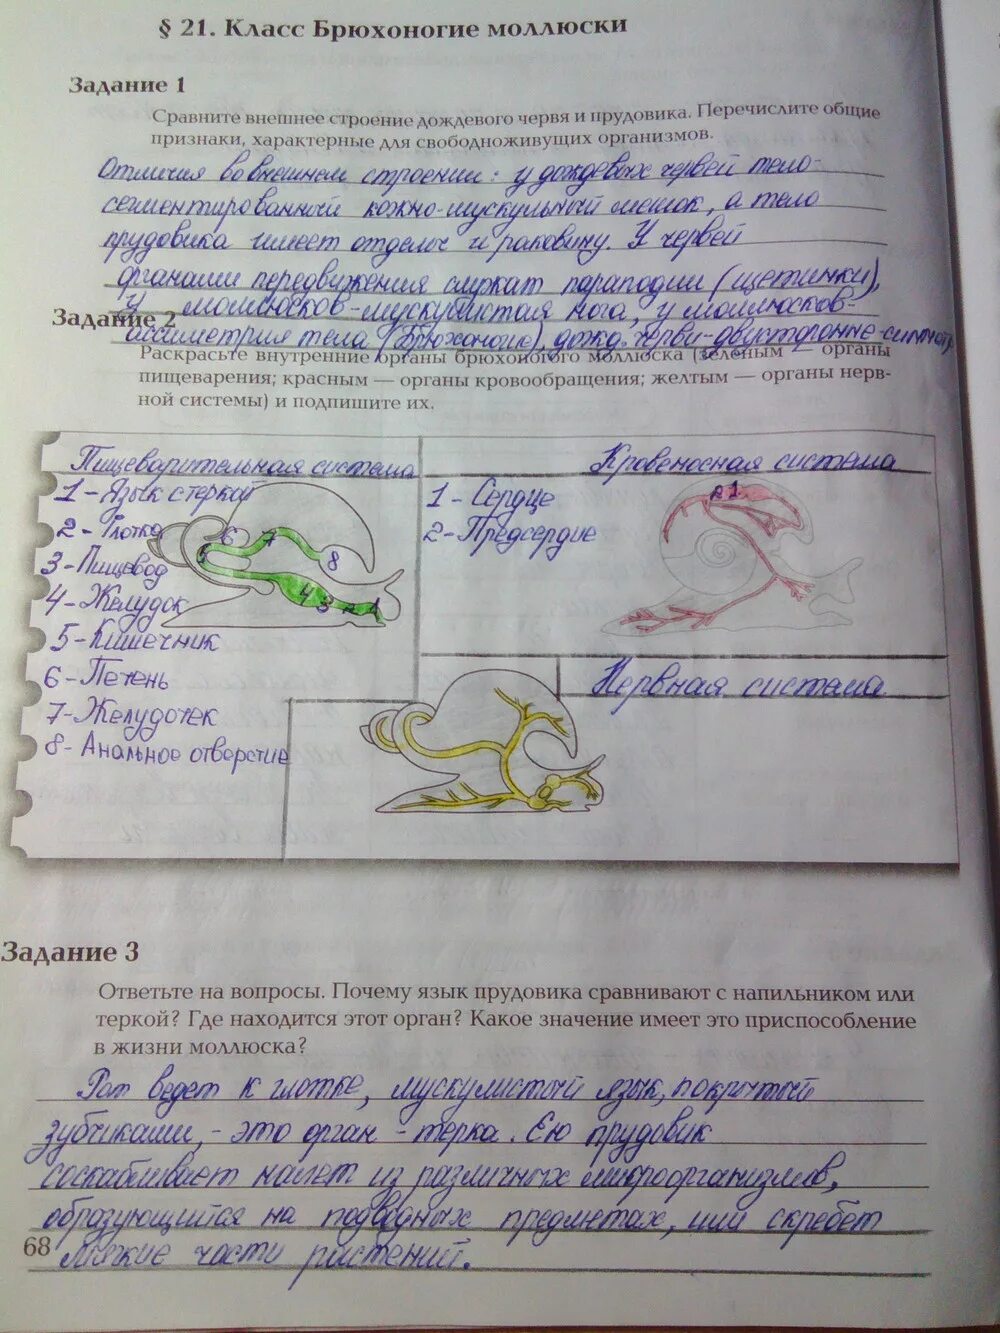 § 21. Класс Брюхоногие моллюски
Задание 1
Сравните внешнее строение дождевого червя и прудовика. Перечислите общие
признаки, характерные для свободноживущих организмов.
Отличия во внешнем строении: у дождевых червей тело-
сегментированный кожно-мускульный мешок, а тело
прудовика имеет отделы и раковину. У червей
органами передвижения служат параподии (щетинки),
у моллюсков-мускулистая нога, у моллюсков-
Задание 2
ассиметрия тела (Брюхоногие), дожд. черви-двусторонне-симметр
Раскрасьте внутренние органы брюхоногого моллюска (зеленым — органы
пищеварения; красным — органы кровообращения; желтым — органы нерв-
ной системы) и подпишите их.
Пищеварительная система
1-Язык с теркой
2- Глотка
3- Пищевод
4- Желудок
5-Кишечник
6-Печень
7-Желудочек
8- Анальное отверстие
5 6 7 8
4 3 2 1
Кровеносная система
1- Сердце
2-Предсердие
2 1
Нервная система
Задание 3
Ответьте на вопросы. Почему язык прудовика сравнивают с напильником или
теркой? Где находится этот орган? Какое значение имеет это приспособление
в жизни моллюска?
Рот ведет к глотке, мускулистый язык, покрытый
зубчиками, - это орган - терка. Ею прудовик
соскабливает налет из различных микроорганизмов,
образующийся на подводных предметах, или скребет
мягкие части растений.
68